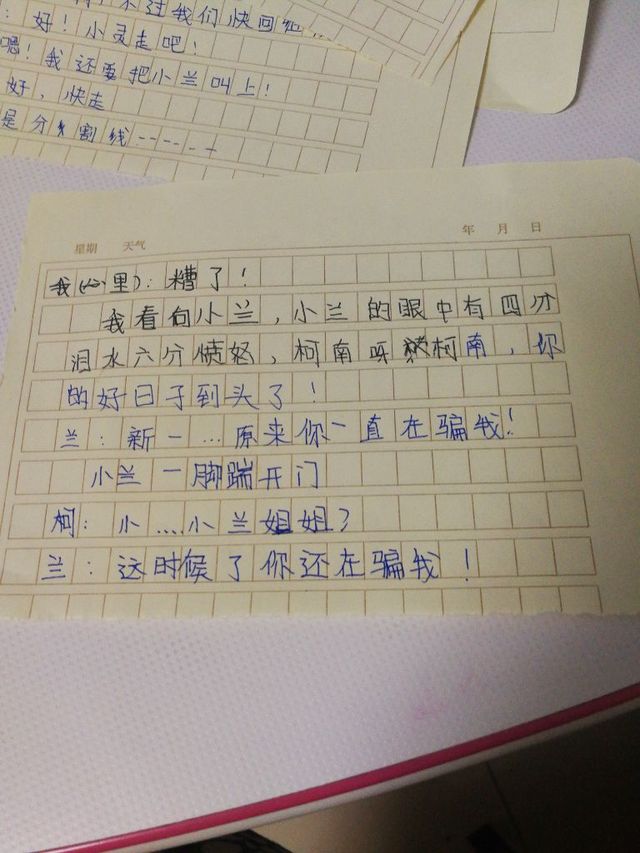 不过我们快回
：好！小灵走吧！
嗯！我还要把小兰叫上！
好，快走
是分割线------
星期 天气 年 月 日
我(心里)：糟了！
我看向小兰，小兰的眼中有四分
泪水六分愤怒，柯南呀柯南，你
的好日子到头了！
兰：新一...原来你一直在骗我！
小兰一脚踹开门
柯：小....小兰姐姐？
兰：这时候了你还在骗我！